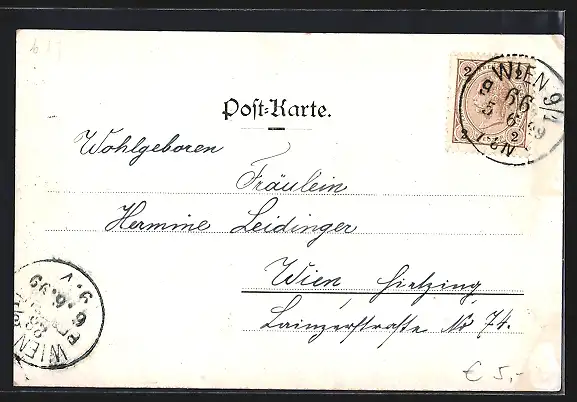 Post-Karte.
Wohlgeboren
Fräulein
Hermine Leidinger
Wien Hietzing
Lainzerstraße No 74.
€ 5,-
2 2
2 2
WIEN 9/1
66
9
5 6 99
7-8N
WIEN
88
6.6.99
9.V